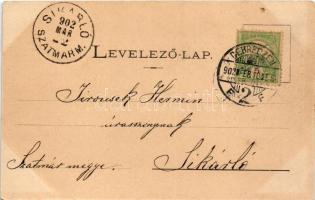 SIKÁRLÓ
902
MAR
2
SZATMÁRM.
LEVELEZŐ-LAP.
DEBRECZEN
Jirousek Hermin
úrasszonynak
Szatmár megye.
Sikárló